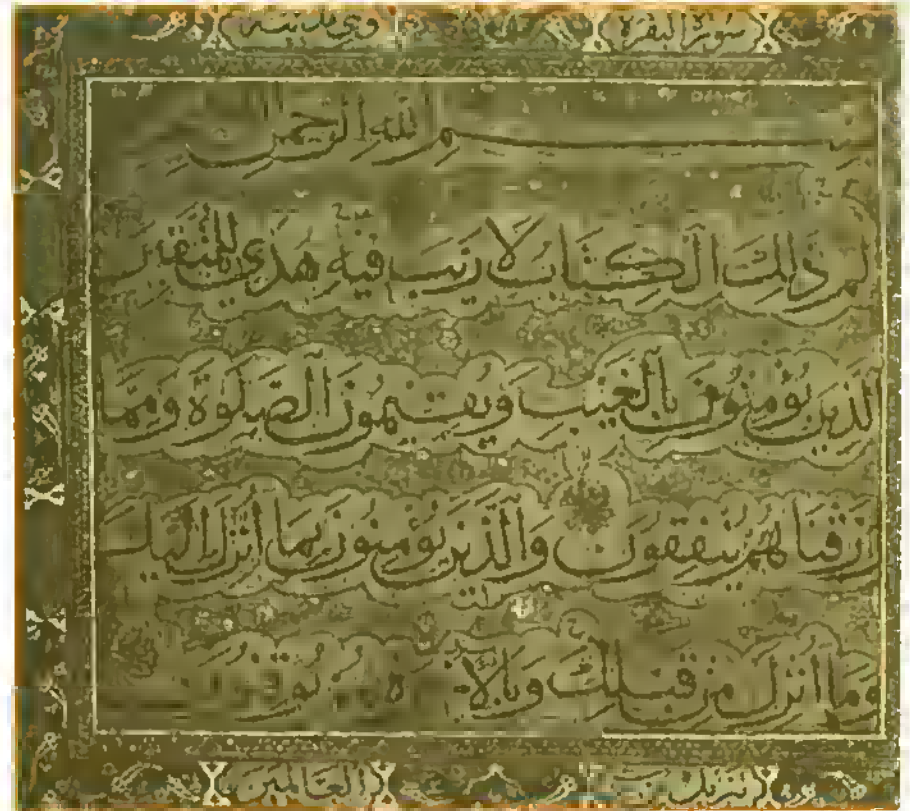 سورة البقرة وهي مدنية
بسم الله الرحمن
الم ذالك الكتاب لا ريب فيه هدى للمتقين
الذين يؤمنون بالغيب ويقيمون الصلوة ومما
رزقناهم ينفقون والذين يؤمنون بما أنزل إليك
وما أنزل من قبلك وبالآخرة هم يوقنون
تنزيل من العالمين